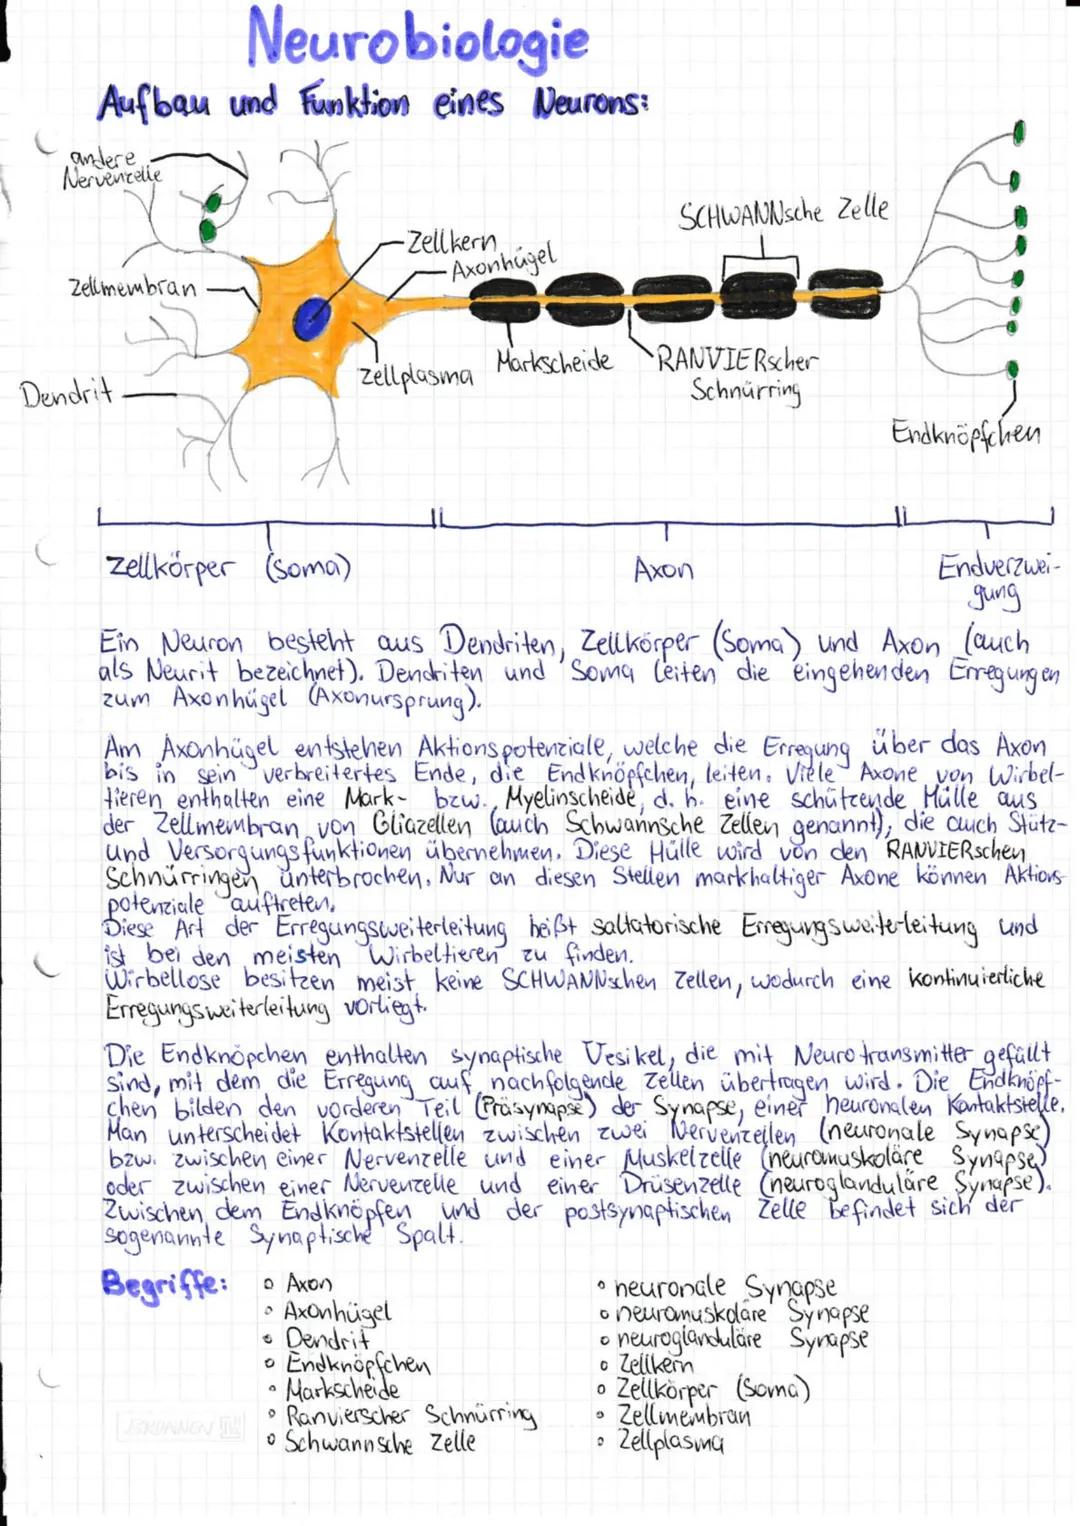 Neurobiologie
Aufbau und Funktion eines Neurons:
andere
Nervenzelle
SCHWANNsche Zelle
Zellkern
Axonhügel
Zellmembran
Markscheide
RANVIERscher
Schnürring
Zellplasma
Dendrit
Endknöpfchen
Zellkörper (Soma)
Axon
Endverzwei-
gung
Ein Neuron besteht aus Dendriten, Zellkörper (Soma) und Axon (auch
als Neurit bezeichnet). Dendriten und Soma leiten die eingehenden Erregungen
zum Axonhügel (Axonursprung).
Am Axonhügel entstehen Aktionspotenziale, welche die Erregung über das Axon
bis in sein verbreitertes Ende, die Endknöpfchen, leiten. Viele Axone von Wirbel-
tieren enthalten eine Mark- bzw. Myelinscheide, d. h. eine schützende Hülle aus
der Zellmembran von Gliazellen (auch Schwannsche Zellen genannt), die auch Stütz-
und Versorgungsfunktionen übernehmen. Diese Hülle wird von den RANVIERschen
Schnürringen unterbrochen. Nur an diesen Stellen markhaltiger Axone können Aktions-
potenziale auftreten.
Diese Art der Erregungsweiterleitung heißt saltatorische Erregungsweiterleitung und
ist bei den meisten Wirbeltieren zu finden.
Wirbellose besitzen meist keine SCHWANNschen Zellen, wodurch eine kontinuierliche
Erregungsweiterleitung vorliegt.
Die Endknöpchen enthalten synaptische Vesikel, die mit Neurotransmitter gefällt
sind, mit dem die Erregung auf nachfolgende Zellen übertragen wird. Die Endknöpf-
chen bilden den vorderen Teil (Präsynapse) der Synapse, einer neuronalen Kontaktstelle.
Man unterscheidet Kontaktstellen zwischen zwei Nervenzellen (neuronale Synapse)
bzw. zwischen einer Nervenzelle und einer Muskelzelle (neuromuskoläre Synapse)
oder zwischen einer Nervenzelle und einer Drüsenzelle (neuroglanduläre Synapse).
Zwischen dem Endknöpfen und der postsynaptischen Zelle befindet sich der
sogenannte Synaptische Spalt.
Begriffe:
Axon
Axonhügel
Dendrit
Endknöpfchen
Markscheide
Ranvierscher Schnürring
Schwannsche Zelle
neuronale Synapse
neuromuskoläre Synapse
neuroglanduläre Synapse
Zellkern
Zellkörper (Soma)
Zellmembran
Zellplasma